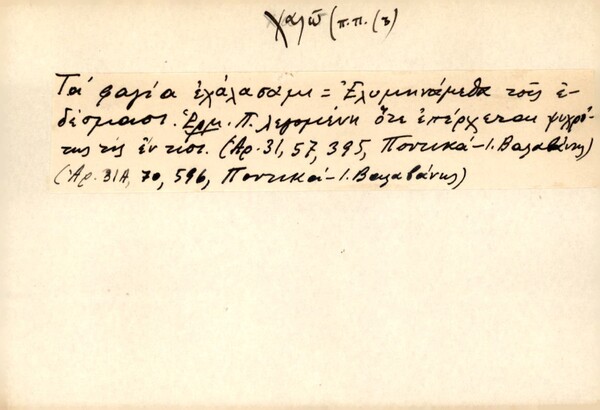 χαλῶ (π.π. (z)
Τά φαγία ἐχάλασαμε = Ἐλυμηνάμεθα τοῖς ἐ-
δέσμασι. Ἑρμ. Π. λεγομένη ὅτε ἐπέρχεται ψυχρό-
της τις ἔν τισι. (Ἀρ. 31, 57, 395, Ποντικά - Ι. Βαλαβάνης)
(Ἀρ. 31Α, 70, 596, Ποντικά - Ι. Βαλαβάνης)